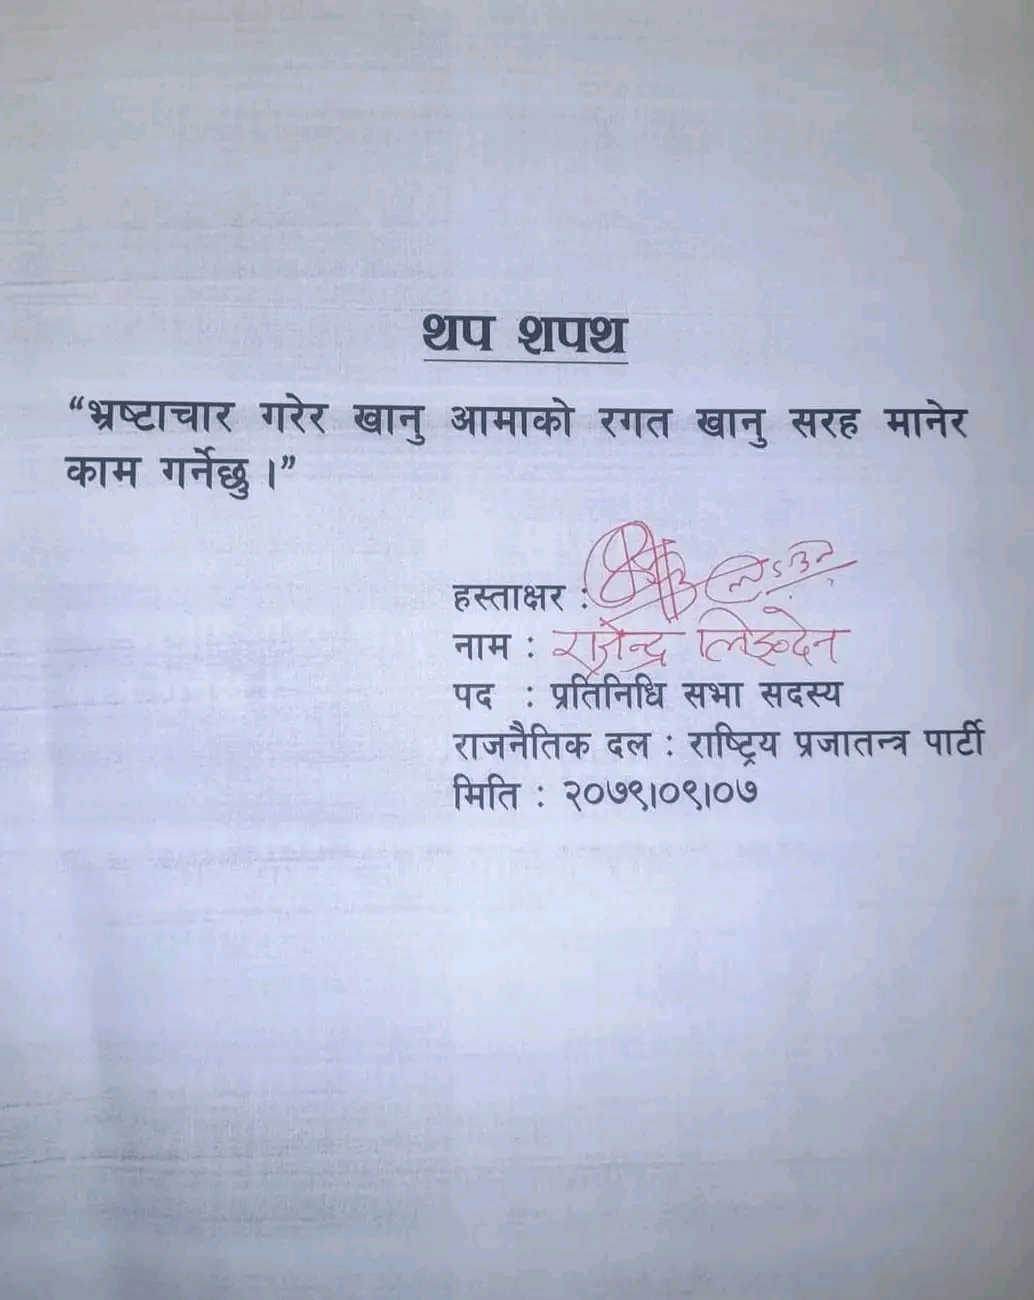 थप शपथ
“भ्रष्टाचार गरेर खानु आमाको रगत खानु सरह मानेर
काम गर्नेछु ।”
हस्ताक्षर :
नाम : राजेन्द्र लिङ्देन
पद : प्रतिनिधि सभा सदस्य
राजनैतिक दल : राष्ट्रिय प्रजातन्त्र पार्टी
मिति : २०७९।०९।०७